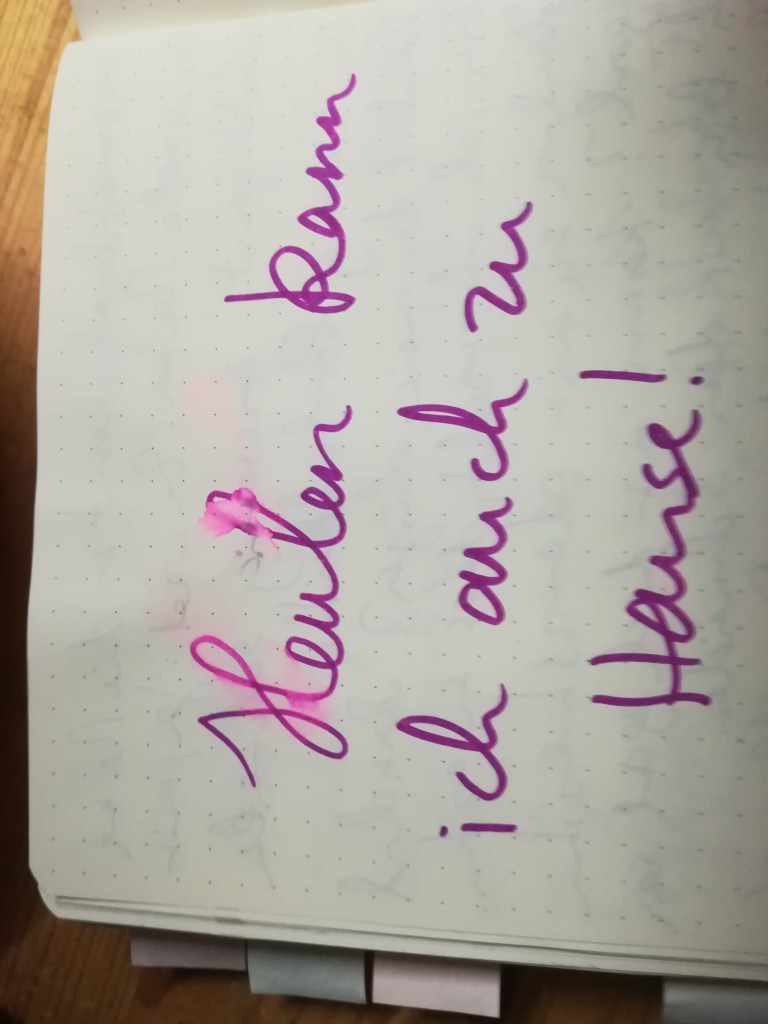 Heulen kann
ich auch zu
Hause!